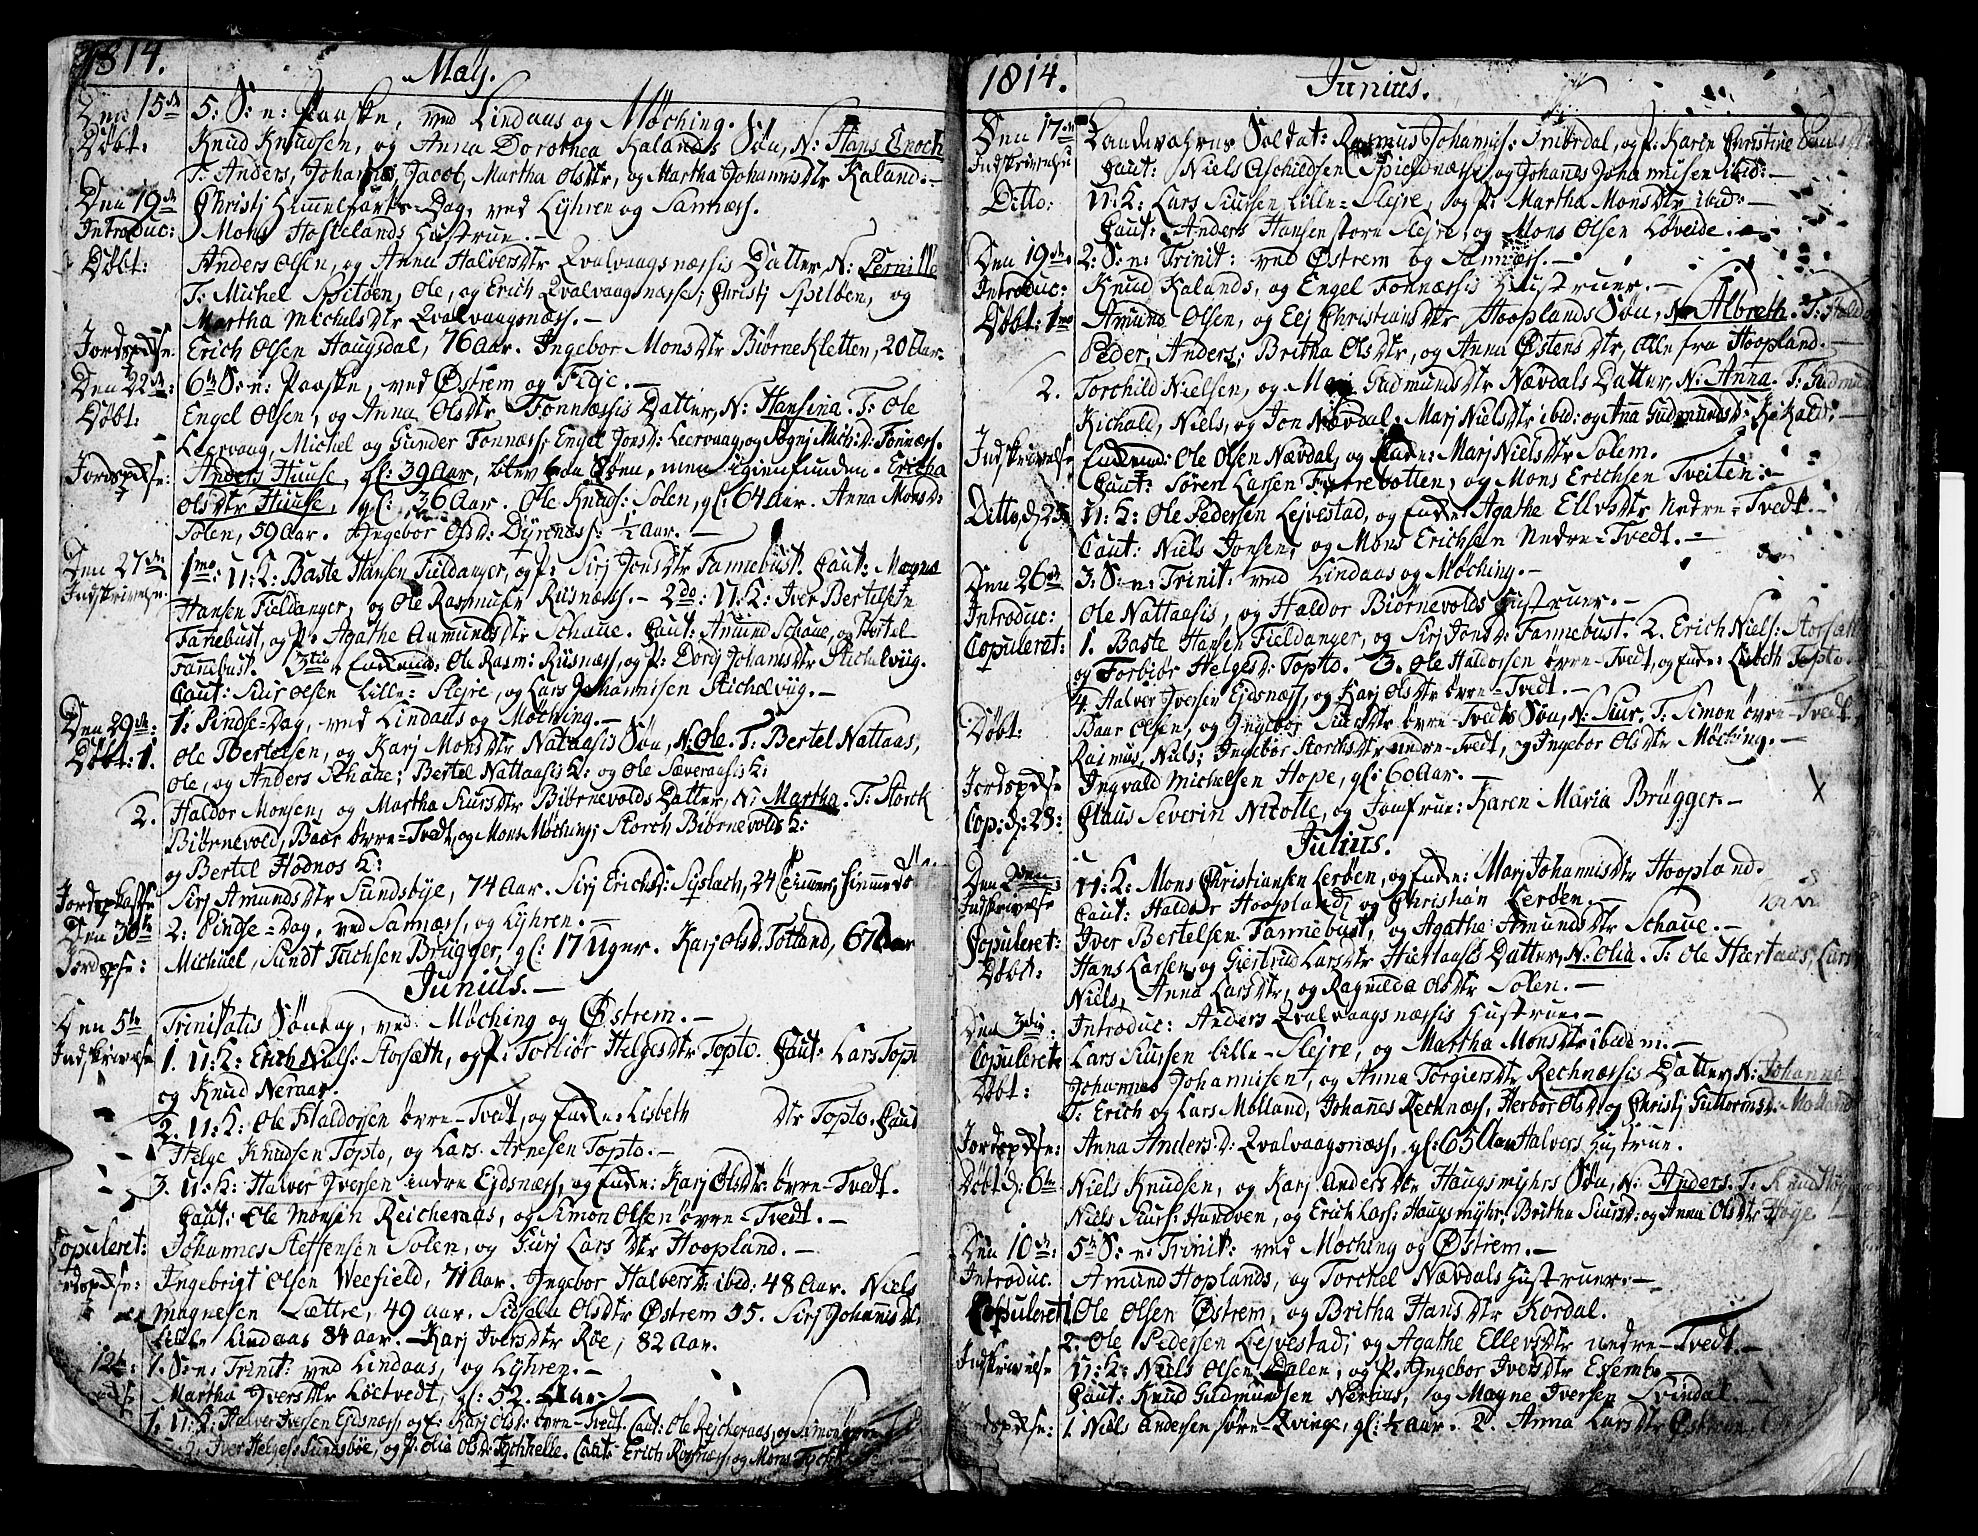 1814. May.
Den 15de 5. S: n: Paaske, ved Lindaas og Møching.
Døbt: Knud Knudsen, og Anna Dorothea Kalands Søn, N: Hans Enoch
T: Anders, Johannes, Jacob, Martha Olsdtr, og Martha Johannisdtr Kaland.-
Den 19de Christj Himmelfarts-Dag, ved Lyhren og Sannæss.
Introduc: Mons Hostelands Hustrue.-
Døbt: Anders Olsen, og Anna Halversdtr Qvalvaagsnæssis Datter, N: Pernille
T: Michel Spitøen, Ole, og Erich Qvalvaagsnæsse; Christj Spitøen, og
Martha Michelsdtr Qvalvaagsnæss.-
Jordspdse: Erich Olsen Haugsdal, 76 Aar. Ingebor Monsdtr Biørnekletten, 20 Aar.
Den 22de: 6te S: n: Paaske, ved Østrem og Fedje.-
Døbt: Engel Olsen, og Anna Olsdtr Fonnæssis Datter, N: Hansina. T: Ole
Leervaag, Michel og Gunder Fonnæss; Engel Jonsd: Leervaag, og Sygnj Mich: d: Fonnæss.
Jordspdse: Anders Huuse, gl: 39 Aar, blev paa Søen, men igienfunden. Ericha
Olsdtr Huuse, gl: 36 Aar. Ole Knuds: Solen, gl: 64 Aar. Anna Monsd:
Solen, 59 Aar. Ingebor Olsd: Dyrenæss: ½ Aar.-
Den 27de 1mo: U: K: Baste Hansen Fieldanger, og P: Sirj Jonsdtr Fannebust. Caut: Magne
Indskrivelse: Hansen Fieldanger, og Ole Rasmusen Risnæss.- 2do: U: K: Iver Bertelsen
Fanebust, og P: Agathe Anmundsdtr Schaue. Caut: Amund Schaue, og Bertel
Fannebust. 3tio: Enkem: Ole Rasm: Risnæss, og P: Dordj Johansdtr Stichelviig.
Caut: Siur Olsen Lille-Slejre, og Lars Johannisen Stichelviig.-
Den 29de: 1: Pindse-Dag, ved Lindaas og Møching.-
Døbt: 1. Ole Bertelsen, og Karj Monsdtr Nataasis Søn, N: Ole. T: Bertel Nattaas,
Ole, og Anders Schaue; Bertel Nattaasis K: og Ole Sæveraasis K:
2. Haldor Monsen, og Martha Siursdtr Biørnevolds Datter, N: Martha. T: Storch
Biørnevold, Baar øvre-Tvedt, og Mons Møching; Storch Biørnevolds K:
og Bertel Hodnes K:
Jordspaasse Sirj Amundsdtr Sundsbye, 74 Aar. Sirj Erichsd: Syslach, 24
Den 30te 2: Pindse-Dag, ved Sannæss, og Lyhren.-
Jordspse: Michael, Sundt Fuchsen Brügger, gl: 17 Uger. Karj Olsd: Totland, 67 Aar
Junius.-
Den 5te Trinitatis Søndag, ved Møching og Østrem.-
Indskrivelse 1. U: K: Erich Niels: Storsæth, og P: Torbiør Helgesdtr Topto. Caut: Lars Topto
og Knud Neraas.
2. U: K: Ole Haldorsen øvre-Tvedt, og Enke: Lisbeth dtr Topto. Caut
Helge Knudsen Topto, og Lars Arnesen Topto.-
3. U: K: Halver Iversen indre Ejdsnæss, og Enke: Karj Olsdtr: øvre-Tvedt.
Caut: Ole Monsen Reicheraas, og Simon Olsen øvre-Tvedt.-
Copuleret: Johannes Steffensen Solen, og Gurj Larsdtr Hoopland.-
Jordspdse: Ingebrigt Olsen Weefield, 71 Aar. Ingebor Halversd: ibid: 48 Aar. Niels
Magnesen Sættre, 49 Aar. Sidsela Olsdtr Østrem 55. Sirj Johannisdtr
Lille Lindaas 84 Aar.- Karj Iversdtr Roe, 82 Aar.
12te: 1. S: n: Trinit: ved Lindaas, og Lyhren.-
Martha Iversdtr Løctvedt, gl: 52. Aar.-
1. U: K: Halver Iversen Ejdsnæss, og P: Karj Olsd: øvre-Tvedt. Caut: Ole Reicheraas, og Simon øvre-Tvedt
2. Iver Helges: Sundsbøe, og P: Olia Olsd: Caut: Erich Risnæss, og Mons
1814. Junius.
Den 17de Landeværns Soldat: Rasmus Johannis: Jmørdal, og P: Karen Christine
Indskrivelse Caut: Niels Aschildsen Spieldnæsse, og Johanes Johannisen ibid:-
Ditto: U: K: Lars Siursen Lille-Slejre, og P: Martha Monsdtr ibid:-
Caut: Anders Hansen store Slejre, og Mons Olsen Løveide.-
Den 19de: 2: S: n: Trinit: ved Østrem og Sannæss.-
Introduc: Knud Kalands, og Engel Fonnæssis Hustruer.-
Døbt: 1mo Amund Olsen, og Elj Christiansdtr Hooplands Søn, N: Albreth. T: Haldor
Peder, Anders; Britha Olsdtr, og Anna Østensdtr, alle fra Hoopland.-
2. Torchild Nielsen, og Marj Gudmundsdtr Nævdals Datter, N: Anna. T: Gudmun
Kichald, Niels, og Jon Nævdal. Marj Nielsdtr ibid: og Ana Gudmundsd: Kichald:-
Indskrivelse Enkem: Ole Olsen Nævdal, og Enke: Marj Nielsdtr Solem.
Caut: Søren Larsen Fuhrebotten, og Mons Erichsen Tveiten.-
Ditto, d: 25 U: K: Ole Pedersen Lejvestad, og Enke: Agathe Ellevsdtr Nedre-Tvedt.-
Caut: Niels Jonsen, og Mons Erichsen Nedre-Tvedt.-
Den 26de 3: S: n: Trinit: ved Lindaas og Møching.-
Introduc: Ole Nattaasis, og Haldor Biørnevolds Hustruer.-
Copuleret: 1. Baste Hansen Fieldanger, og Sirj Jonsd: Fannebust. 2. Erich Niels: Storsæth
og Torbiør Helgesd: Topto. 3. Ole Haldorsen øvre-Tvedt, og Enke: Lisbeth Topto.
4. Halver Iversen Ejdsnæss, og Karj Olsdtr øvre-Tvedt.-
Døbt: Baar Olsen, og Ingebor Siursdtr øvre-Tvedts Søn, N: Siur. T: Simon øvre-Tvedt,
Rasmus, Niels; Ingebor Storchsdtr nedre-Tvedt, og Ingebor Olsdtr Møching.-
Jordspdse Ingvald Michelsen Hope, gl: 60 Aar.-
Cop: d: 28: Claus Severin Nicolle, og Jomfrue: Karen Maria Brügger.- X
Julius.
Den 2den: U: K: Mons Christiansen Lerøen, og Enke: Marj Johannisdtr Hoopland.
Indskrivelse Caut: Haldor Hoopland, og Christian Lerøen.-
Copuleret: Iver Bertelsen Fannebust, og Agathe Amundsdtr Schaue.-
Døbt: Hans Larsen, og Giertrud Larsdtr Hiertaasis Datter, N: Olia. T: Ole Hiertaas, Lars
Niels, Anna Larsdtr, og Ragnilda Olsdtr Solen.-
Den 3die: Introduc: Anders Qvalvaagsnæssis Hustrue.-
Copuleret: Lars Siursen Lille-Slejre, og Martha Monsdtr ibidem.-
Døbt: Johannes Johannisen, og Anna Torgiersdtr Rechnæssis Datter, N: Johanna
T: Erich og Lars Molland, Johanes Rechnæss, Herbor Olsd: og Christj Guttormsd: Molland
Jordspdse: Anna Andersd: Qvalvaagsnæss, gl: 65 Aar Halvers Hustrue.
Døbt d: 6te Niels Knudsen, og Karj Andersdtr Haugsmyhrs Søn, N: Anders. T: Knud
Niels Siurs: Hundven, og Erich Lars: Haugsmyhr; Britha Siursd: og Anna Olsdtr Hope
Den 10de 5te S: n: Trinit: ved Møching og Østrem.-
Introduc. Amund Hoplands, og Torchel Nævdals Hustruer.-
Copuleret 1. Ole Olsen Østrem, og Britha Hansdtr Kordal.
2. Ole Pedersen Lejvestad, og Agathe Ellevsdtr nedre-Tvedt.-
Indskrivelse U: K: Niels Olsen Dalen, og P: Ingebor Iversdtr
Caut: Knud Gudmundsen Neraas, og Magne Iversen Tvindal.-
Jordspdse: 1. Niels Andersen søre-Qvinge, gl: ½ Aar. 2. Anna Larsdtr Østrem